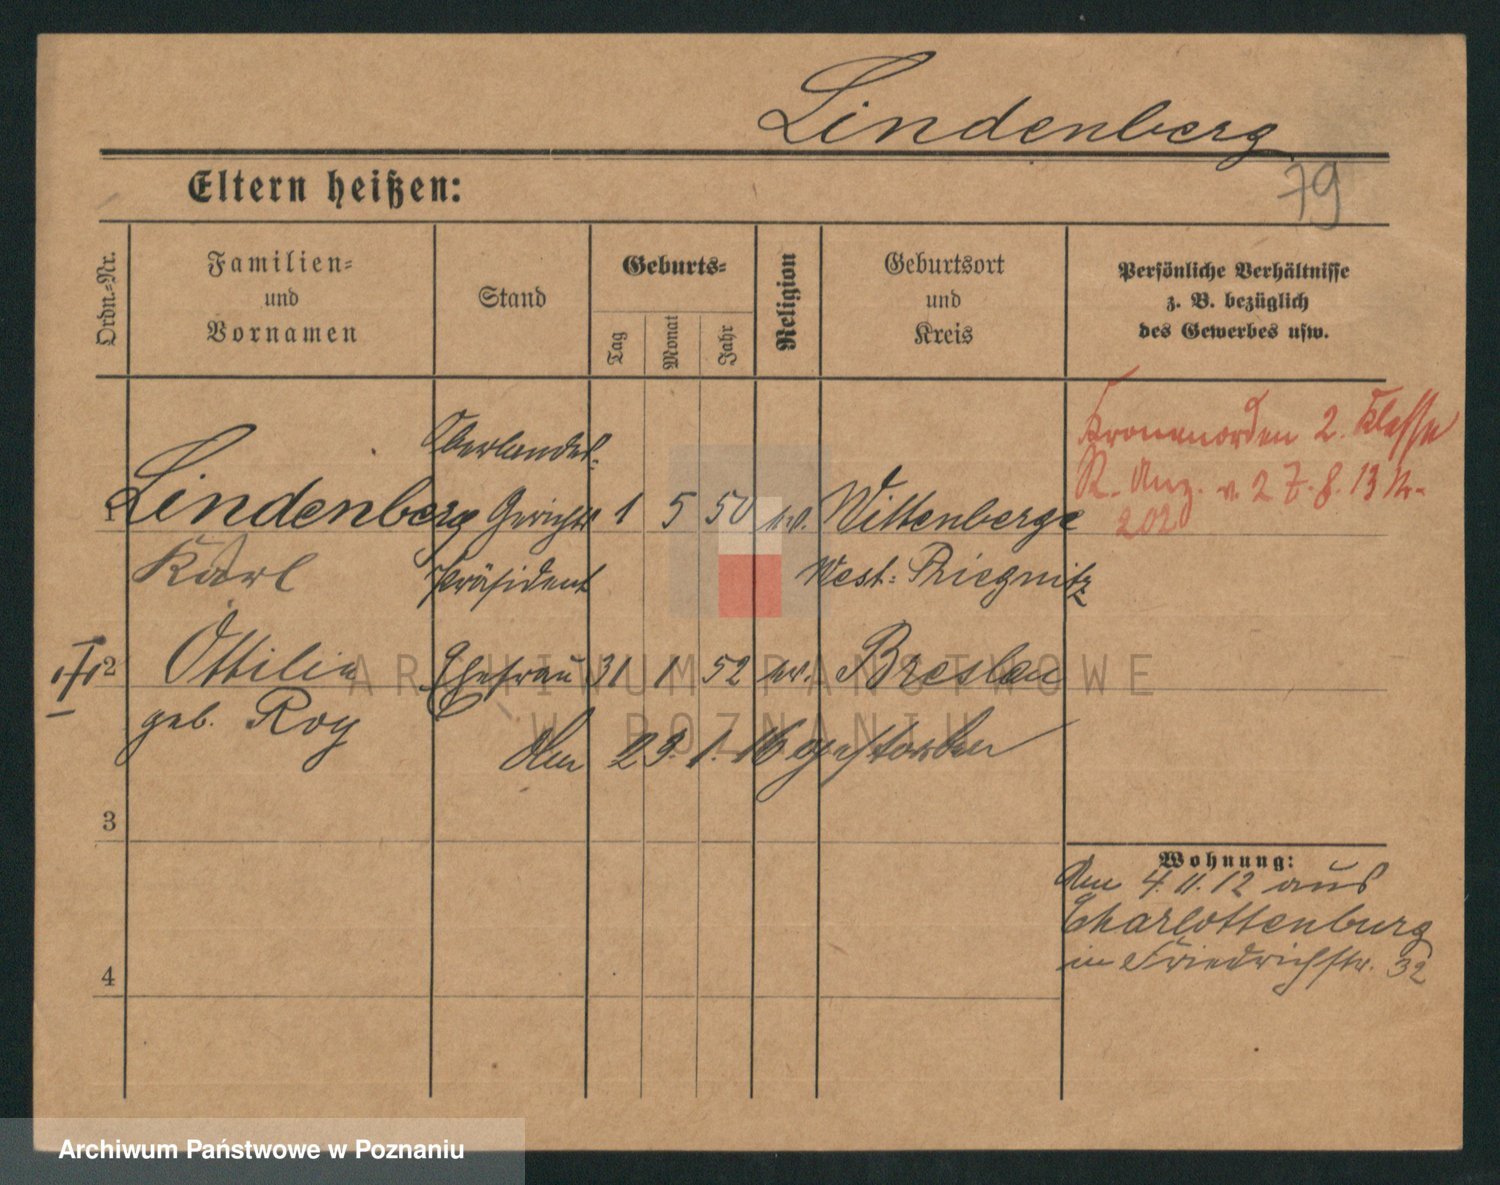 Lindenberg
79
Eltern heißen:
Ordn.-Nr.
Familien-
und
Vornamen
Stand
Geburts-
Tag
Monat
Jahr
Religion
Geburtsort
und
Kreis
Persönliche Verhältnisse
z. B. bezüglich
des Gewerbes usw.
Kronenorden 2. Klasse
R. Anz. v. 27.8.13 Nr.
202
Oberlandes-
1 Lindenberg Gerichts 1 5 50 ev. Wittenberge
Karl Präsident West-Priegnitz
2 Ottilie Ehefrau 31 1 52 ev. Breslau
geb. Roy
den 23.1.16 gestorben
3
4
Wohnung:
Am 4.11.12 aus
Charlottenburg
in Friedrichstr. 32
ARCHIWUM PAŃSTWOWE
W POZNANIU
Archiwum Państwowe w Poznaniu